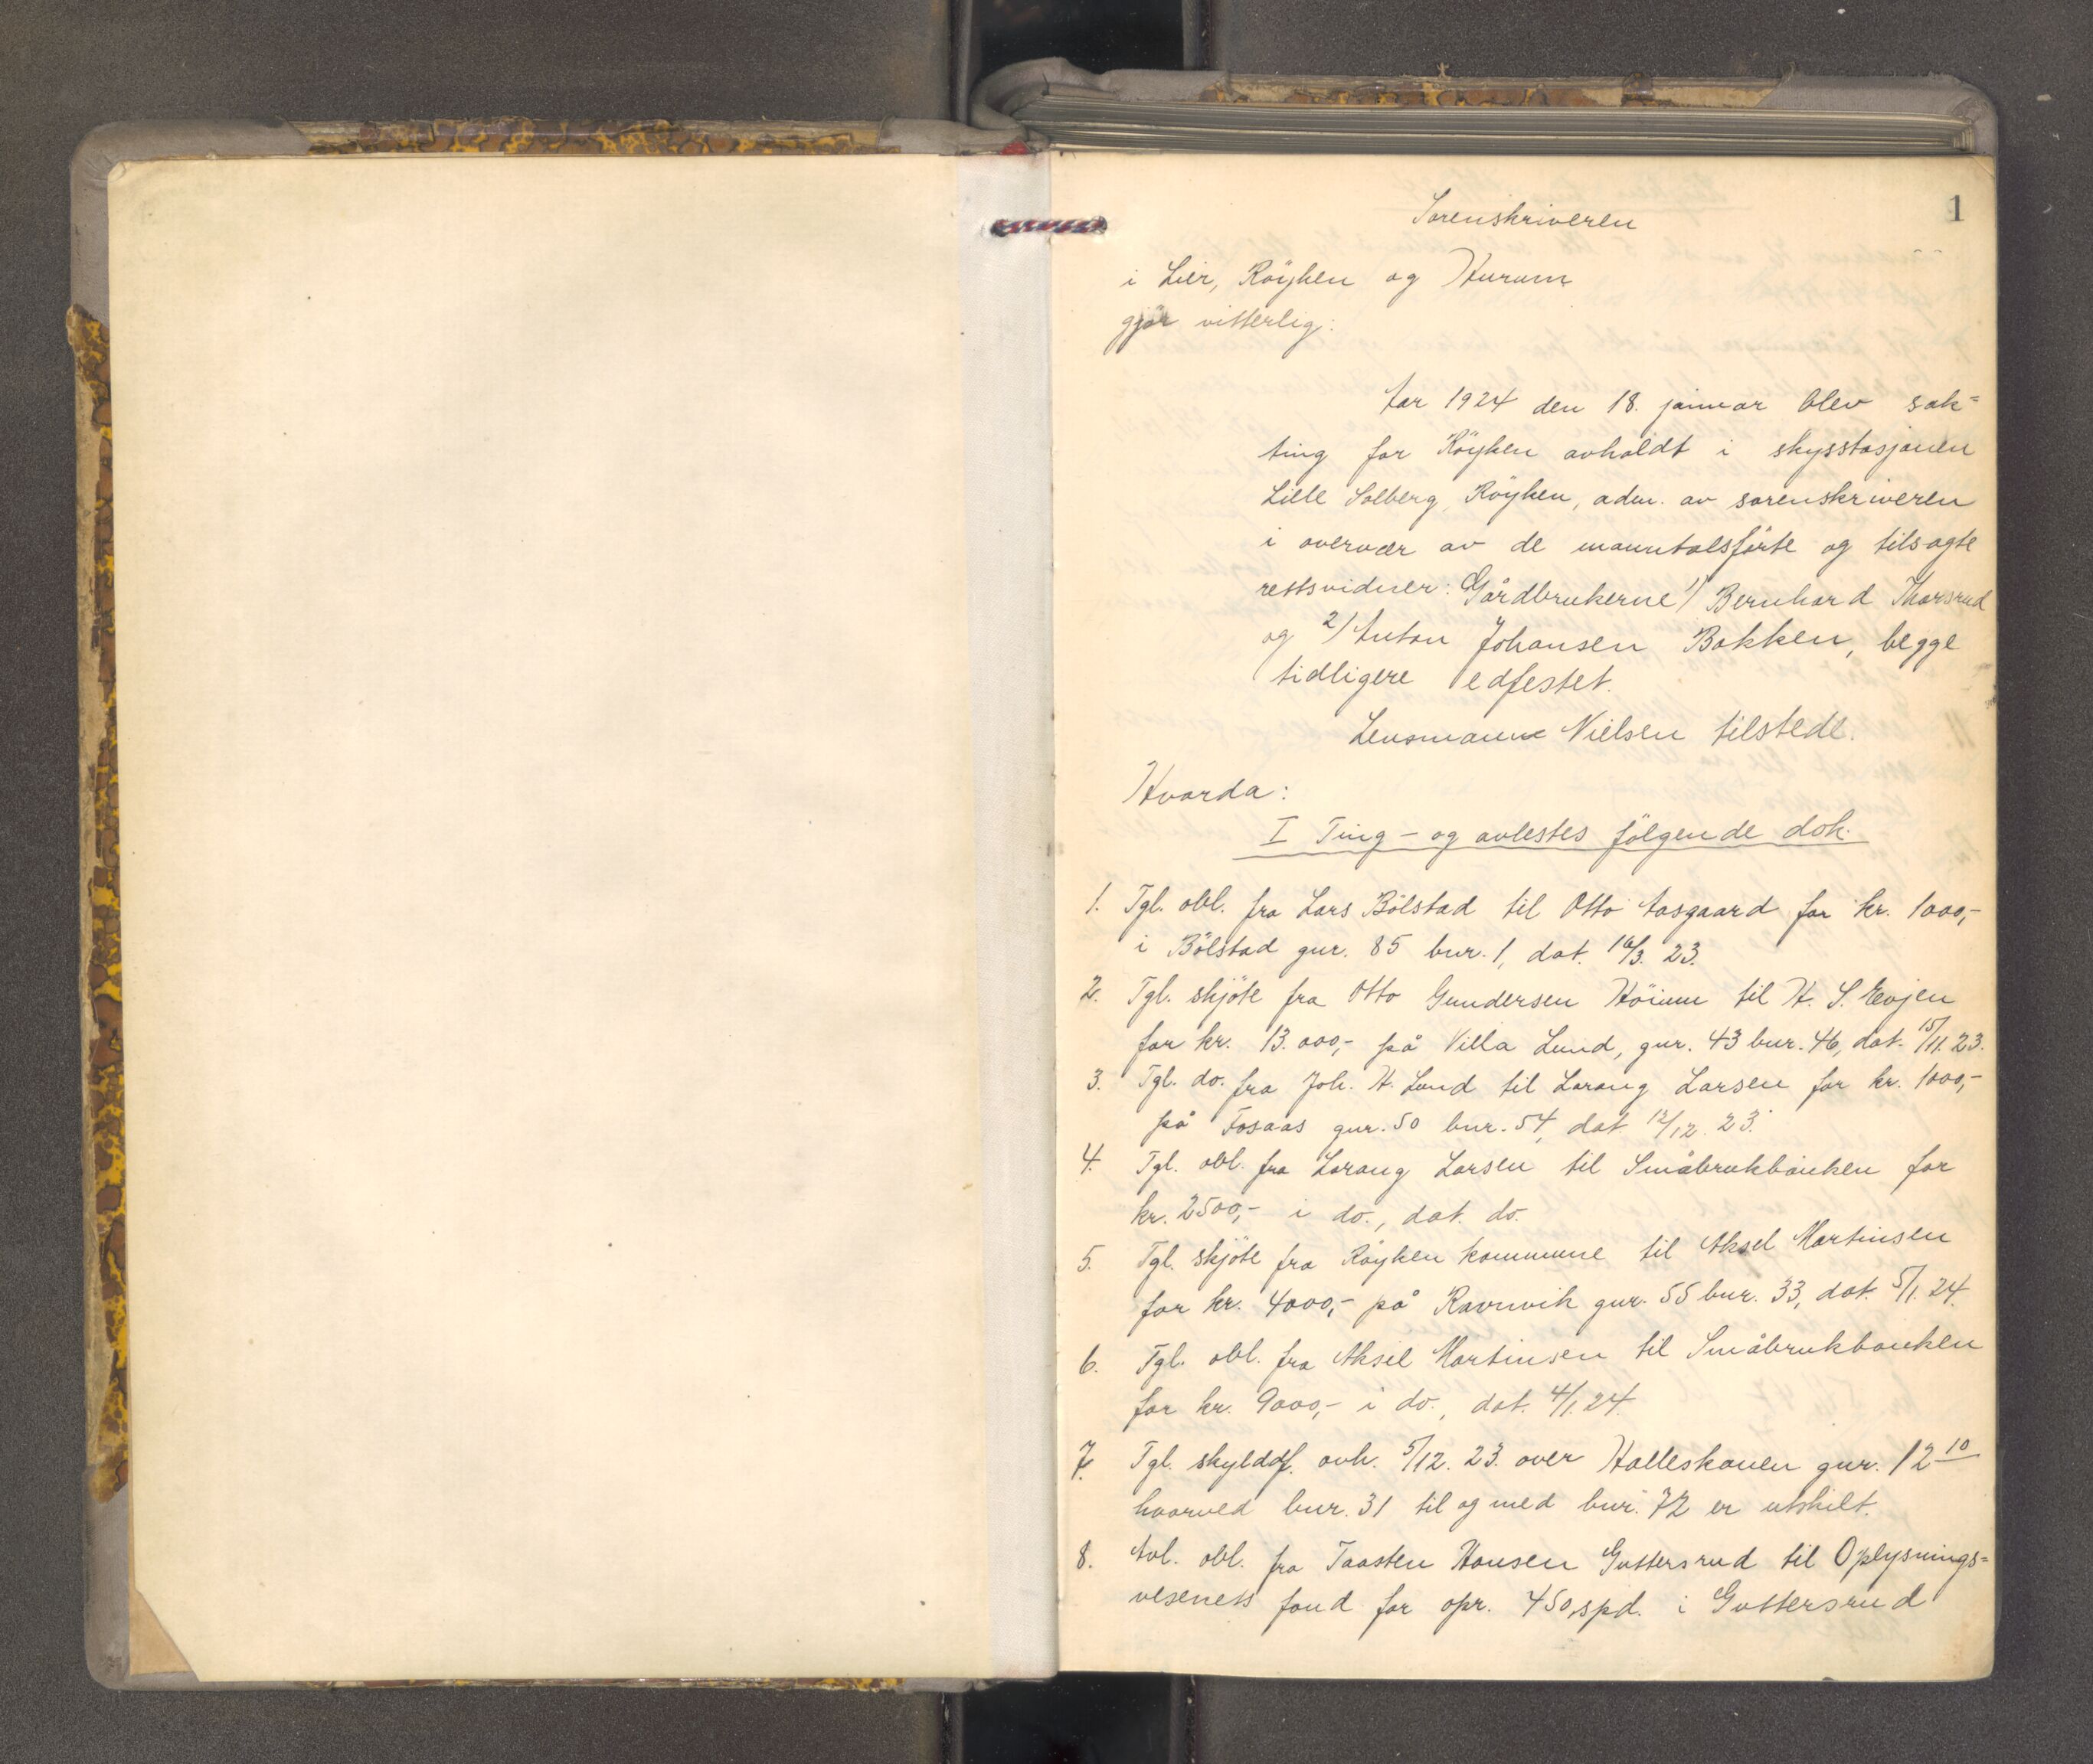 1
Sorenskriveren
i Lier, Röyken og Hurum
gjör vitterlig:
Aar 1924 den 18. januar blev sak=
ting for Röyken avholdt i skysstasjonen
Lille Solberg, Röyken, adm. av sorenskriveren
i overvær av de manntalsförte og tilsagte
rettsvidner: Gårdbrukerne 1/ Bernhard Thorsrud
og 2/ Anton Johansen Bakken, begge
tidligere edfestet.
Lensmann Nielsen tilstede.
Hvorda:
I Ting- og avlestes fölgende dok.
1. Tgl. obl. fra Lars Bölstad til Otto Aasgaard for kr. 1000,-
i Bölstad gnr. 85 bnr. 1, dat. 16/3. 23.
2. Tgl. skjöte fra Otto Gundersen Höium til H. S. Evjen
for kr. 13.000,- på Villa Lund, gnr. 43 bnr. 46, dat. 15/11. 23.
3. Tgl. do. fra Joh. H. Lund til Lorang Larsen for kr. 1000,-
på Fosaas gnr. 50 bnr. 54, dat. 12/12. 23.
4. Tgl. obl. fra Lorang Larsen til Småbrukbanken for
kr. 2500,- i do., dat. do.
5. Tgl. skjöte fra Röyken kommune til Aksel Martinsen
for kr. 4000,- på Ravnvik gnr. 55 bnr. 33, dat. 5/1. 24.
6. Tgl. obl. fra Aksel Martinsen til Småbrukbanken
for kr. 9000,- i do., dat. 4/1. 24.
7. Tgl. skylddf. avh. 5/12. 23. over Halleskouen gnr. 12 10
hvorved bnr. 31 til og med bnr. 72 er utskilt.
8. Avl. obl. fra Taasten Hansen Guttersrud til Oplysnings=
vesenets fond for opr. 450 spd. i Guttersrud